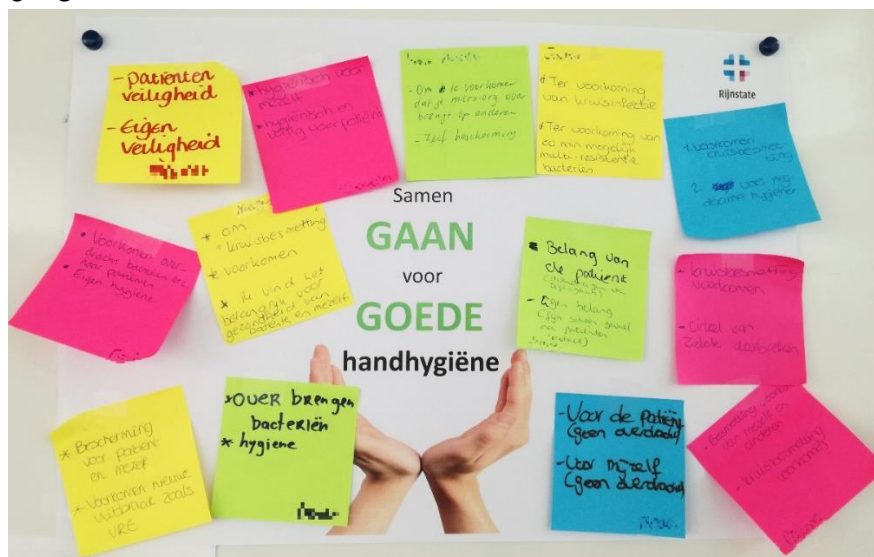 - Patiënten
veiligheid
- Eigen
veiligheid
* hygiënisch voor
mezelf
* hygiënisch en
veilig voor patiënt
- Om te voorkomen
dat je micro-org over
brengt op anderen
- Zelf bescherming
* Ter voorkoming
van kruisinfectie
* Ter voorkoming van
zo min mogelijk
multi-resistentie
bacteriën
Rijnstate
1. Voorkomen
kruisbesmet-
ting
2.
hygiëne
Samen
GAAN
voor
GOEDE
handhygiëne
* Voorkomen over-
dracht bacteriën
naar patiënten
* Eigen hygiëne
* om
kruisbesmetting
* voorkomen
* Ik vind het
belangrijk voor
gezondheid van
patiënt en mezelf
* Belang van
de patiënt
- Eigen belang
- kruisbesmetting
voorkomen
- Cirkel van
ziekte doorbreken
* Bescherming
voor patiënt
en mezelf
* Voorkomen nieuwe
uitbraak zoals
VRE
* OVER brengen
bacteriën
* hygiene
- Voor de patiënt
(geen overdracht)
- Voor mijzelf
(geen overdracht)
van mezelf en
anderen
- kruisbesmetting
voorkomen